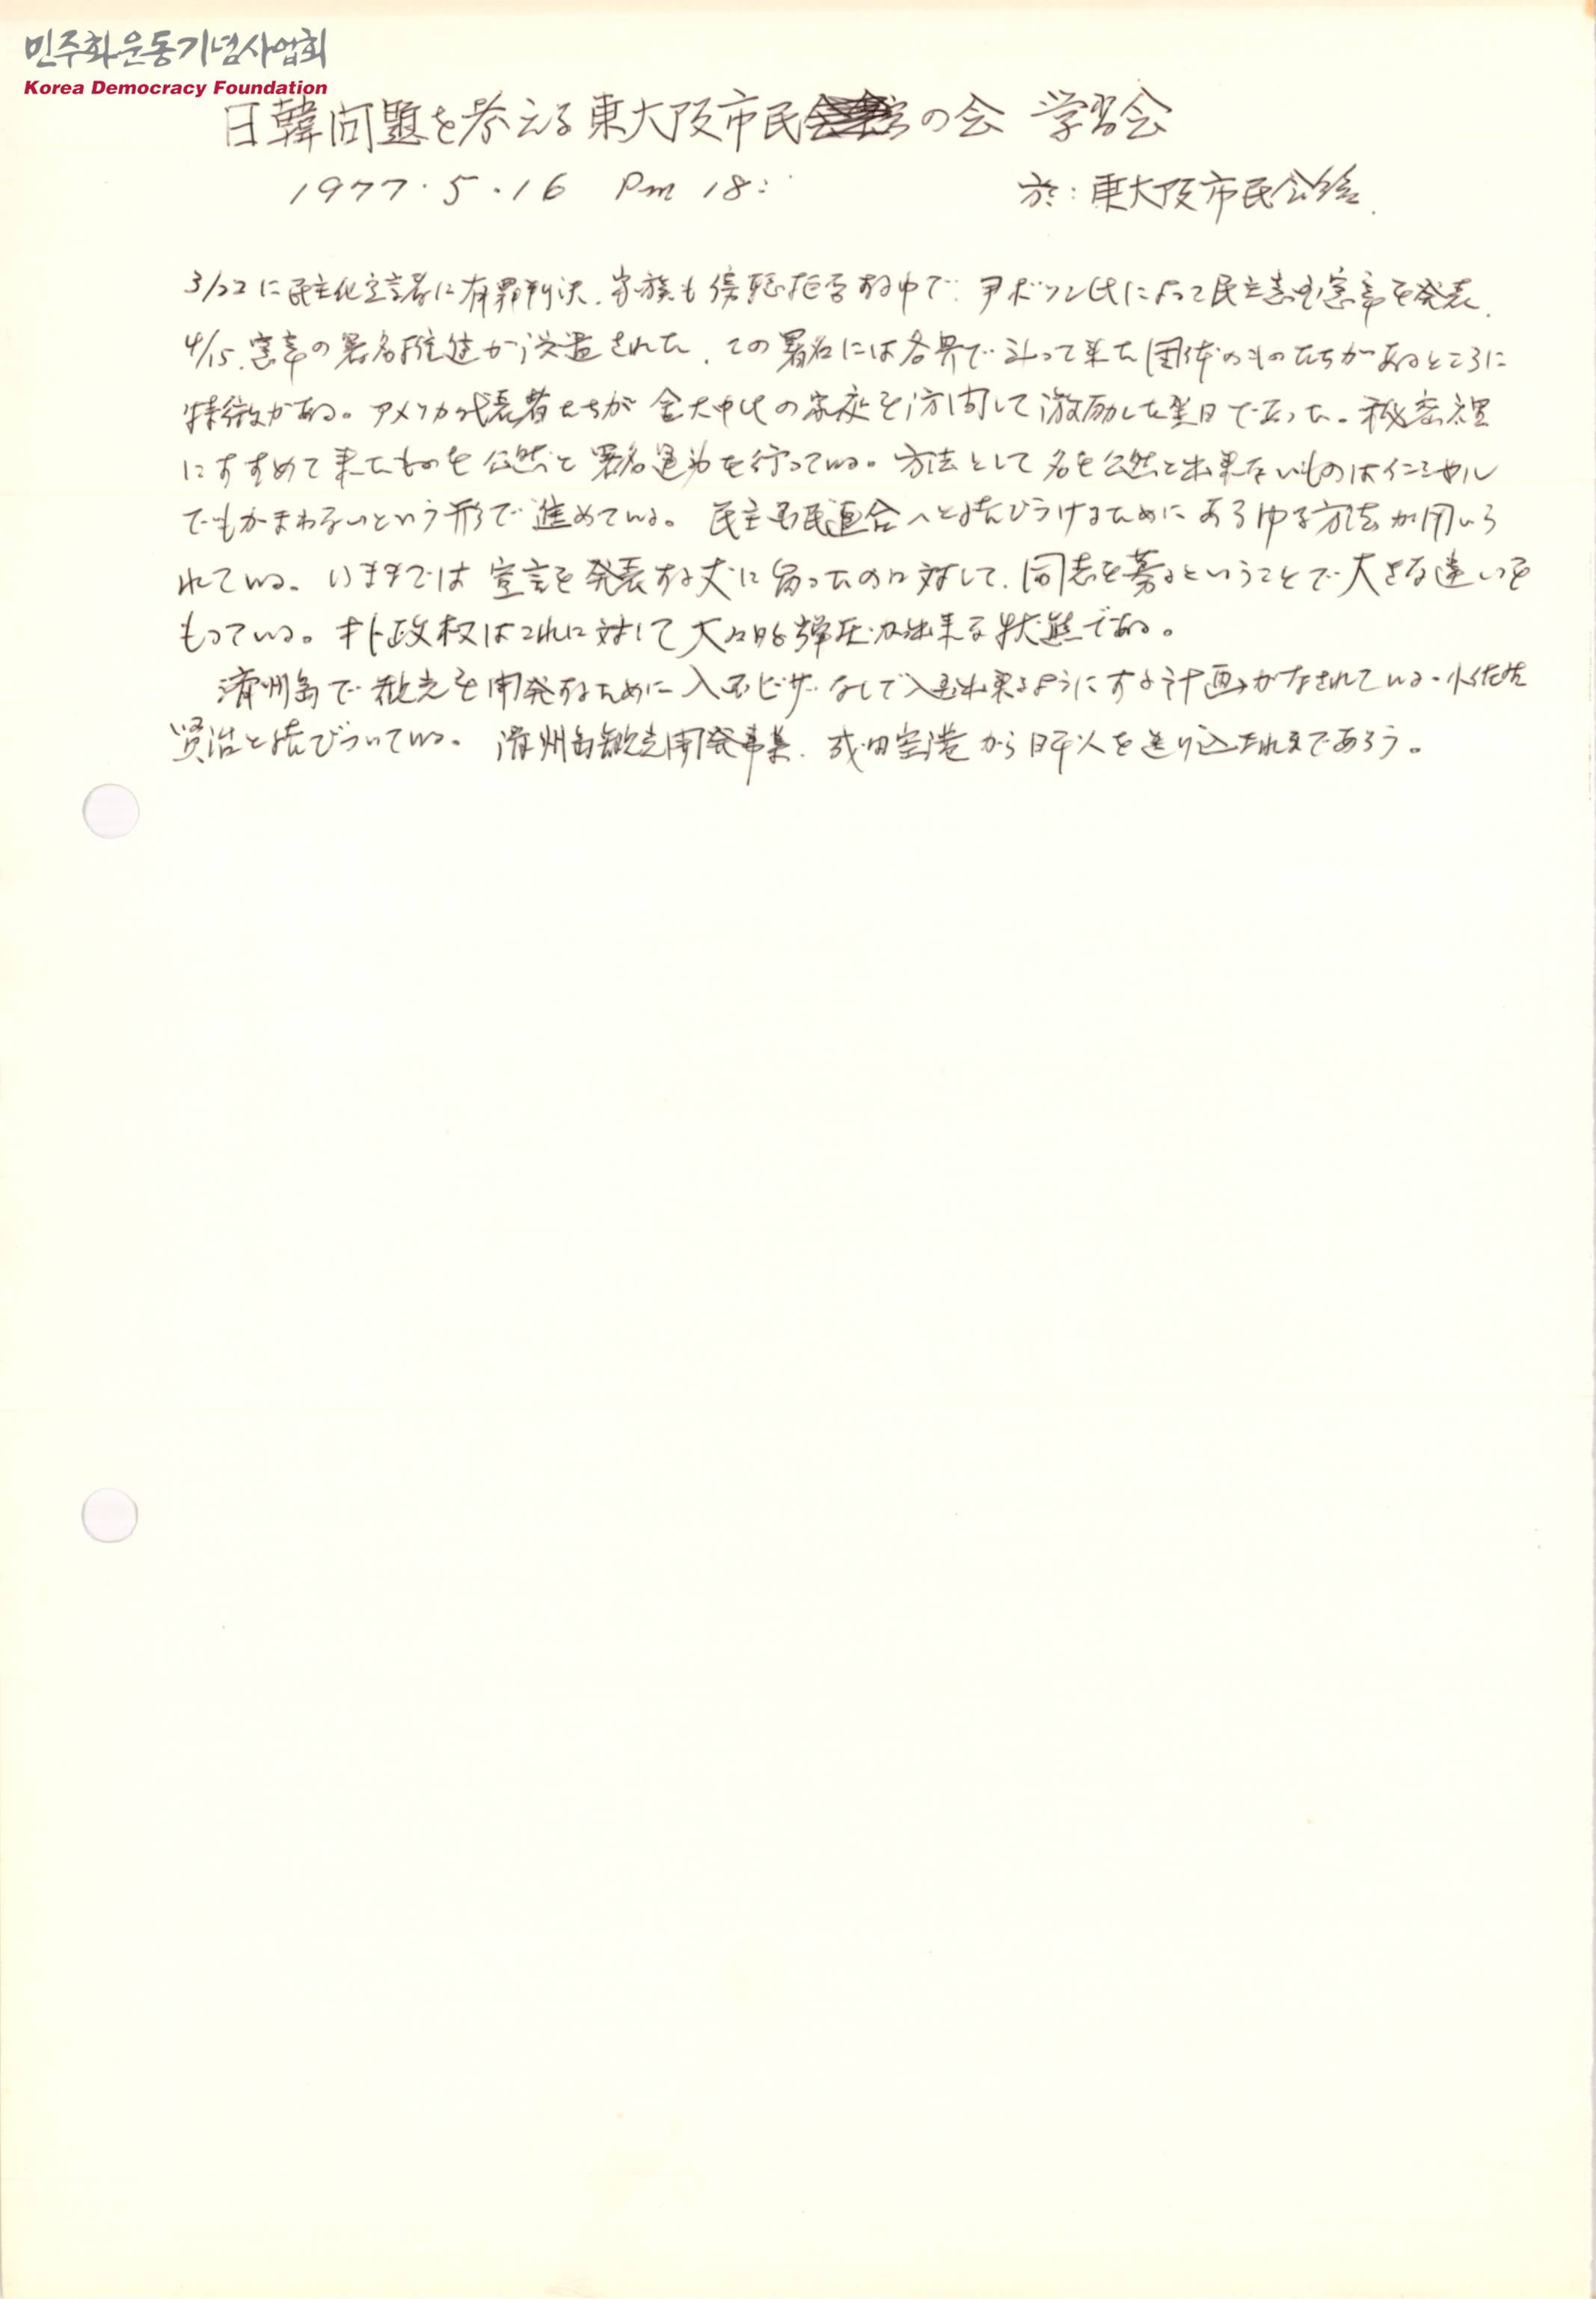 민주화운동기념사업회
Korea Democracy Foundation
日韓問題を考える東大阪市民の会 学習会
1977.5.16 Pm 18:
於:東大阪市民会館.
3/22に民主化宣言者に有罪判決.家族も傍聴拒否する中で.尹ボソン氏によって民主救国憲章を発表.
4/15.憲章の署名推進が設置された.この署名には各界で斗って来た団体のものたちがあるところに
特徴がある。アメリカ代表者たちが金大中氏の家庭を訪問して激励した翌日であった。秘密裡
にすすめて来たものを公然と署名運動を行っている。方法として名を公然と出来ないものはイニシャル
でもかまわないという形で進めている。民主国民連合へと結びつけるためにあらゆる方法が用いら
れている。いままでは宣言を発表する丈に留ったのに対して.同志を募るということで大きな違いを
もっている。朴政権はこれに対して大々的弾圧が出来る状態である。
済州島で観光を開発するために入国ビザなしで入国出来るようにする計画がなされている.小佐野
賢治と結びついている。済州島観光開発事業.成田空港から日本人を送り込まれるであろう。